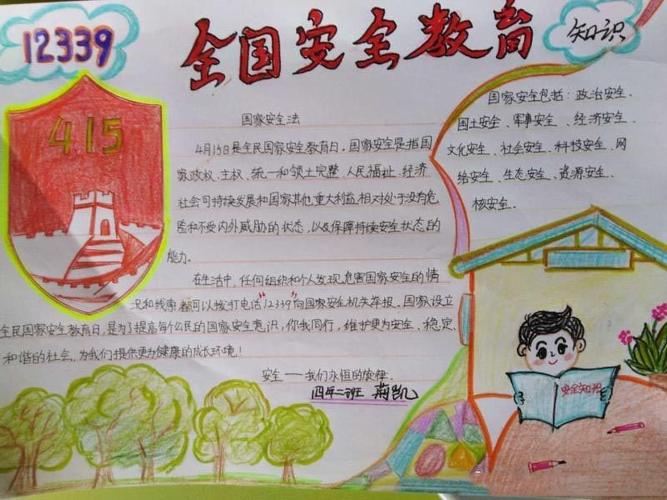 12339
全国安全教育
知识
415
国家安全法
4月15日是全民国家安全教育日。国家安全是指国
家政权、主权、统一和领土完整、人民福祉、经济
社会可持续发展和国家其他重大利益相对处于没有危
险和不受内外威胁的状态,以及保障持续安全状态的
能力。
在生活中,任何组织和个人发现危害国家安全的情
况和线索都可以拨打电话"12339"向国家安全机关举报。国家设立
全民国家安全教育日,是为了提高每个公民的国家安全意识,你我同行,维护更为安全、稳定、
和谐的社会,为我们提供更为健康的成长环境!
安全——我们永恒的旋律
四年二班 凯
国家安全包括:政治安全、
国土安全、军事安全、经济安全、
文化安全、社会安全、科技安全、网
络安全、生态安全、资源安全、
核安全。
安全知识